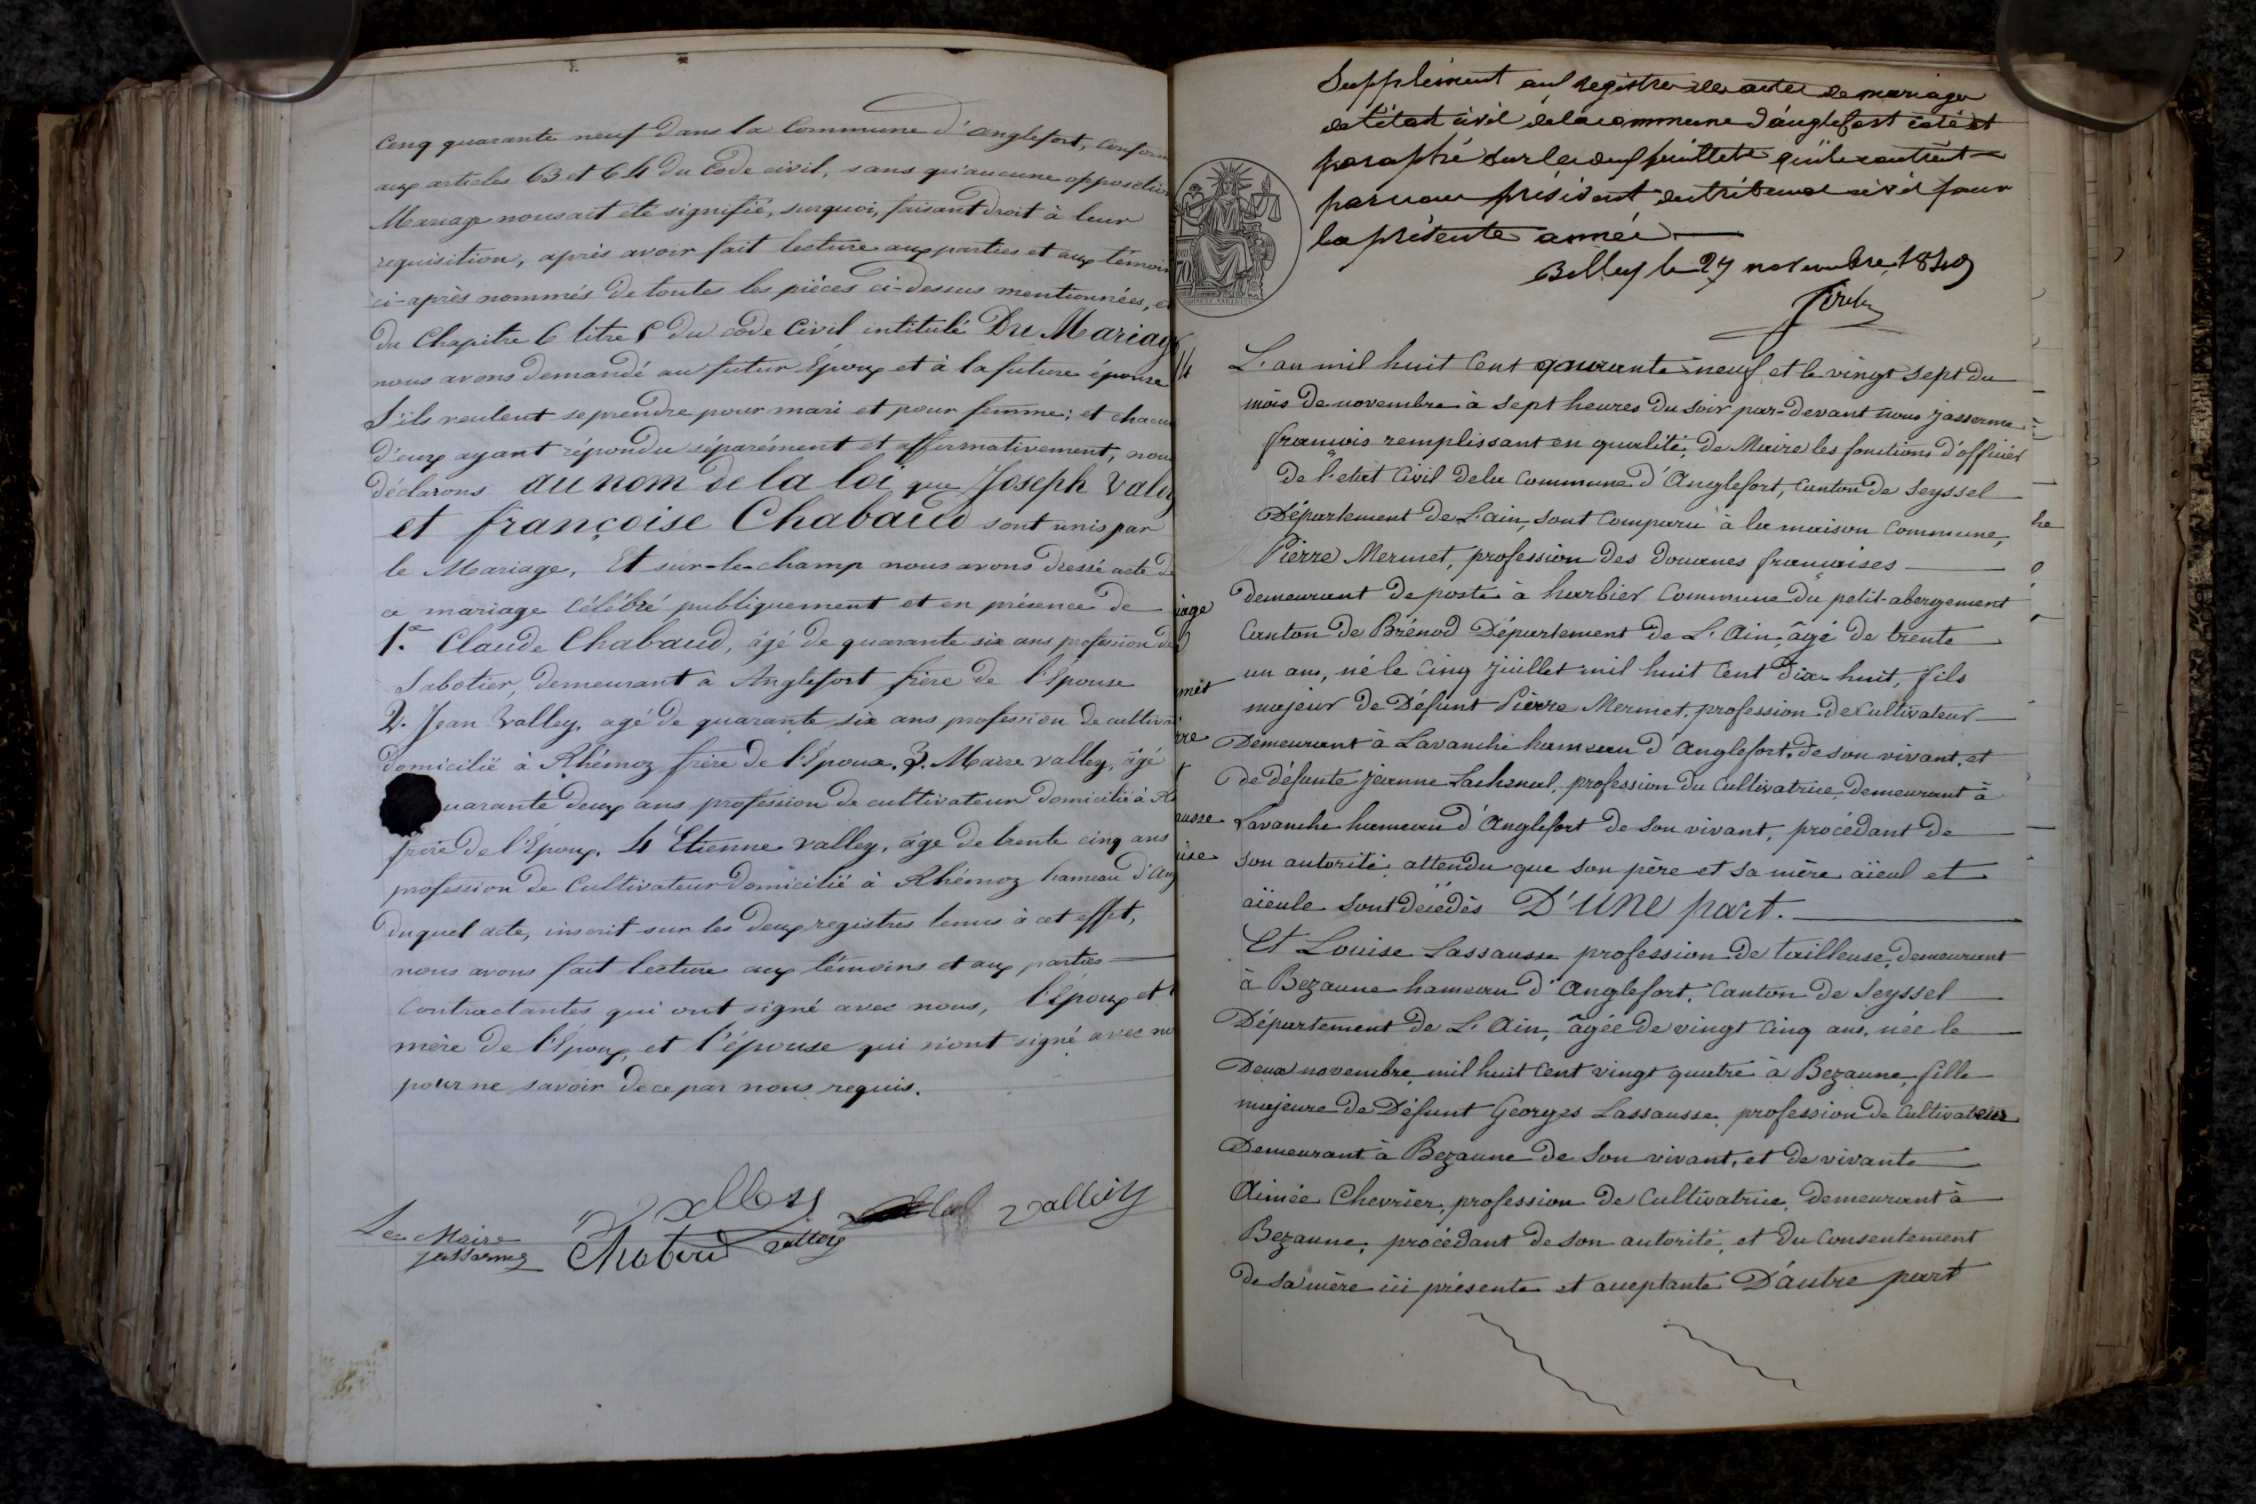 cenq quarante neuf dans la Commune d'anglefort, conform
aux articles 63 et 64 du Code civil, sans qu'aucune opposition
Mariage nous ait été signifié, surquoi, faisant droit à leur
requisition, après avoir fait lecture aux parties et aux témoin
ci-après nommés de toutes les pièces ci-dessus mentionnées, e
du Chapitre 6 titre 5 du Code Civil intitulé Du Mariag
nous avons demandé au futur Époux et à la future épouse
S'ils veulent se prendre pour mari et pour femme; et chacun
d'eux ayant répondu séparément et affirmativement, nou
déclarons au nom de la loi que Joseph Vall
et françoise Chabaud sont unis par
le Mariage, Et sur-le-champ nous avons dressé acte d
ce mariage célébré publiquement et en présence de
1.° Claude Chabaud, âgé de quarante six ans profession de
Sabotier, demeurant à Anglefort frère de l'Epouse
2. Jean Valley, agé de quarante six ans profession de cultiva
domicilié à Rhémoz frère de l'Époux, 3. Maire Valley, âgé
uarante deux ans profession de cultivateur domicilié à R
frère de l'Époux. 4 Etienne Valley, âgé de trente cinq ans
profession de Cultivateur domicilié à Rhémoz hameau d'Ang
duquel acte, inscrit sur les deux registres tenus à cet effet,
nous avons fait lecture aux témoins et aux parties
contractantes qui ont signé avec nous, l'Époux et l
mère de l'Époux et l'épouse qui n'ont signé avec no
pour ne savoir de ce par nous requis.
Le Maire
Jasserme
Valley
Chabaud
Valley
Supplément au registre des actes de mariage
de l'état civil de la commune d'anglefort coté et
paraphé sur les deux feuillets qu'il contient
par nous président du tribunal civil pour
la présente année
Belley le 27 novembre 1849
14
L'an mil huit Cent quarante-neuf et le vingt sept du
mois de novembre à sept heures du soir par-devant nous Jasserme
françois remplissant en qualité de Maire les fonctions d'officier
de l'etat Civil de la Commune d'Anglefort, Canton de Seyssel
Département de L'ain, sont comparu à la maison Commune,
Pierre Mermet, profession des Douanes françaises
demeurant de poste à hurbier Commune du petit-abergement
Canton de Brénod Département de L'Ain, âgé de trente
un ans, né le Cinq juillet mil huit Cent Dix-huit, fils
majeur de Défunt Pierre Mermet, profession de Cultivateur
Demeurant à Lavanche hameau d'Anglefort, de son vivant, et
de défunte Jeanne Lachenal, profession du Cultivatrice, Demeurant à
Lavanche hameau d'Anglefort de Son vivant, procédant de
son autorité, attendu que son père et sa mère aïeul et
aïeule Sont décédés D'une part.
Et Louise Lassausse profession de tailleuse, demeurant
à Bezaune hameau d'Anglefort, Canton de Seyssel
Département de L'Ain, âgée de vingt Cinq ans, née le
Deux novembre mil huit Cent vingt quatre à Bezaune, fille
majeure de Défunt Georges Lassausse, profession de Cultivateur
Demeurant à Bezaune de Son vivant, et de vivante
Aimée Chevrier, profession de Cultivatrice, demeurant à
Bezaune, procédant de son autorité, et du Consentement
de sa mère ici présente et acceptante D'autre part